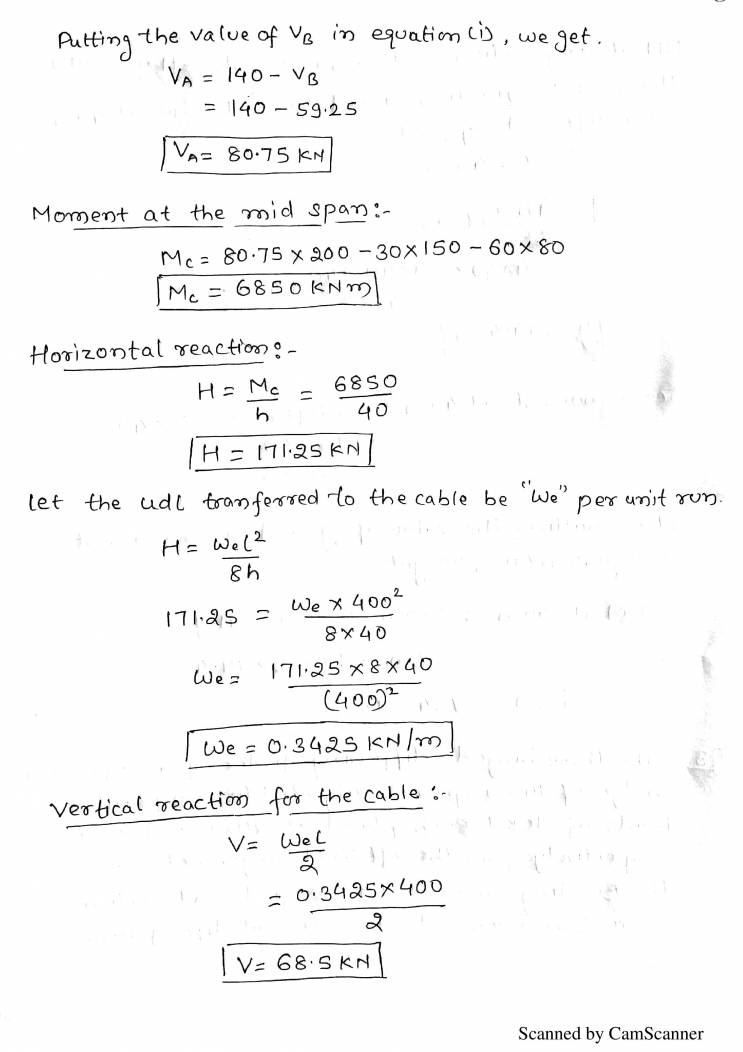 Putting the value of VB in equation (i), we get.
VA = 140 - VB
= 140 - 59.25
VA = 80.75 KN
Moment at the mid span:-
Mc = 80.75 x 200 - 30x150 - 60x80
Mc = 6850 KNm
Horizontal reaction:-
H = Mc/h = 6850/40
H = 171.25 KN
let the udl tranferred to the cable be "we" per unit run.
H = wel²/8h
171.25 = we x 400²/8x40
we = 171.25 x 8 x 40/(400)²
we = 0.3425 KN/m
Vertical reaction for the cable :-
V = wel/2
= 0.3425x400/2
V = 68.5 KN
Scanned by CamScanner